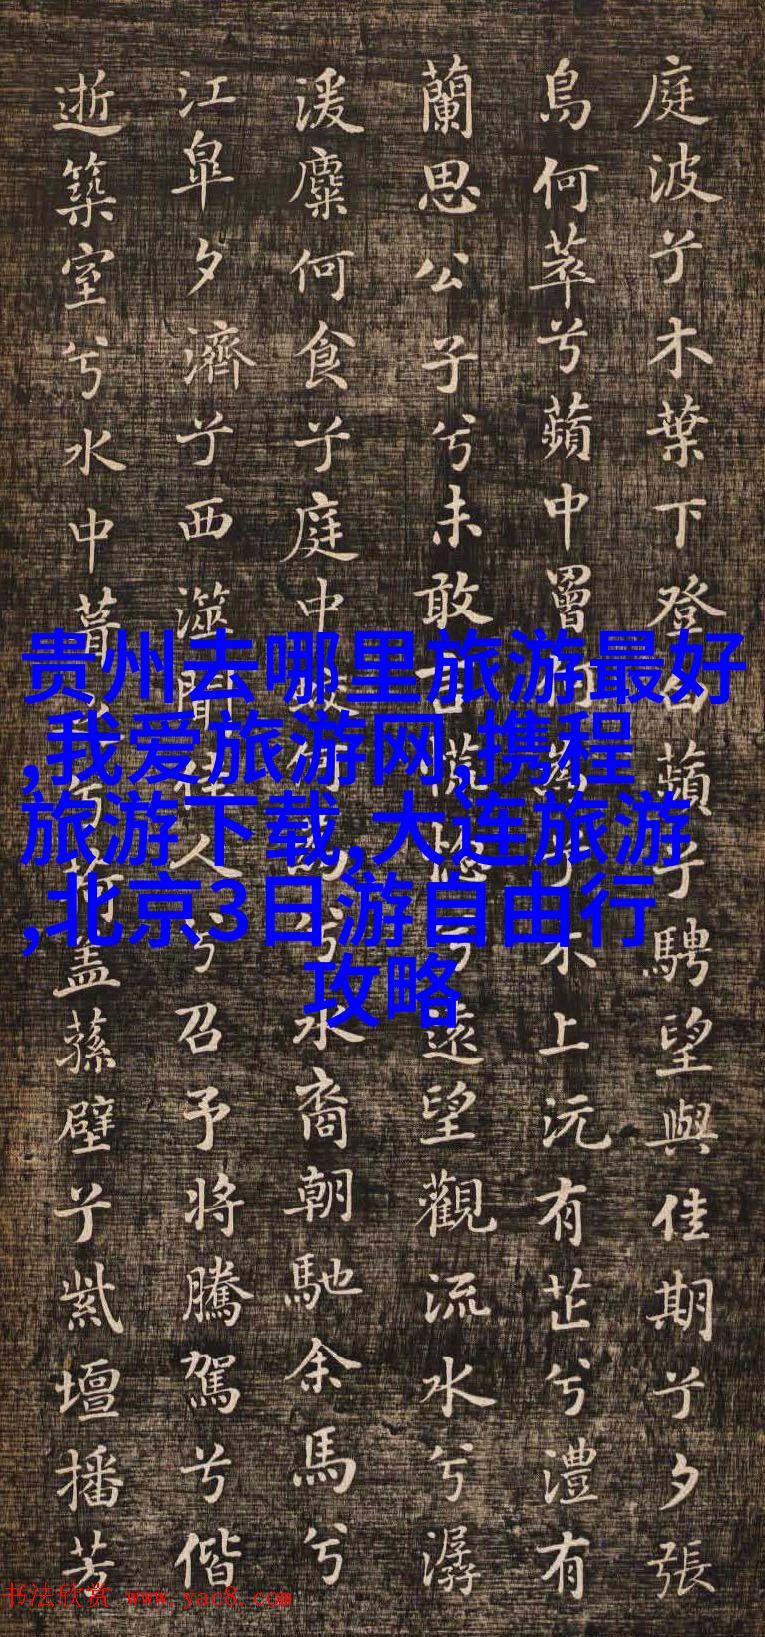 庭波兮木葉下登白蘋兮騁望與佳期兮夕張
鳥何萃兮蘋中罾何為兮木上沅有芷兮澧有
蘭思公子兮未敢言慌惚兮遠望觀流水兮潺
湲麋何食兮庭中蛟何為兮水裔朝馳余馬兮
江皋夕濟兮西澨聞佳人兮召予將騰駕兮偕
逝築室兮水中葺之兮荷蓋蓀壁兮紫壇播芳
贵州去哪里旅游最好
,我爱旅游网,携程
旅游下载,大连旅游
,北京3日游自由行
攻略
书法欣赏 www.yac8.com